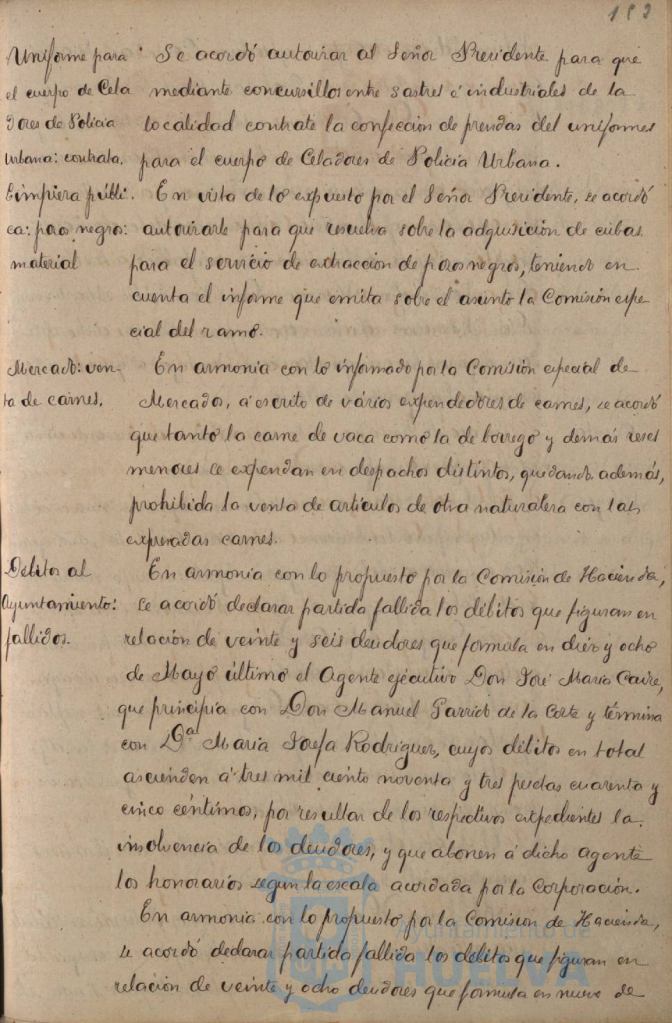 Uniforme para
el cuerpo de Cela
dores de Policia
Urbana: contrata.
Se acordó autorizar al Señor Presidente para que
mediante concursillos entre sastres é industriales de la
localidad contrate la confección de prendas del uniformes
para el cuerpo de Celadores de Policia Urbana.
Limpieza públi
ca: pozos negros:
material
En vista de lo expuesto por el Señor Presidente, se acordó
autorizarle para que resuelva sobre la adquisición de cubas
para el servicio de extracción de pozos negros, teniendo en
cuenta el informe que emita sobre el asunto la Comisión espe
cial del ramo.
Mercado: ven-
ta de carnes.
En armonia con lo informado por la Comisión especial de
Mercado, á escrito de vários expendedores de carnes, se acordó
que tanto la carne de vaca como la de borrego y demás reses
menores se expendan en despachos distintos, quedando además,
prohibida la venta de articulos de otra naturaleza con las
expresadas carnes.
Débitos al
Ayuntamiento:
fallidos.
En armonia con lo propuesto por la Comisión de Hacienda,
se acordó declarar partida fallida los débitos que figuran en
relación de veinte y seis deudores que formula en diez y ocho
de Mayo último el Agente ejecutivo Don José Maria
que principia con Don Manuel Garrido de la Corte y términa
con Dª Maria Josefa Rodriguez, cuyos débitos en total
ascienden á tres mil ciento noventa y tres pesetas cuarenta y
cinco céntimos, por resultar de los respectivos expedientes la
insolvencia de los deudores, y que abonen á dicho agente
los honorarios segun la escala acordada por la Corporación.
En armonia con lo propuesto por la Comision de Hacienda,
se acordó declarar partida fallida los débitos que figuran en
relación de veinte y ocho deudores que formula en nueve de
Ayuntamiento de
HUELVA